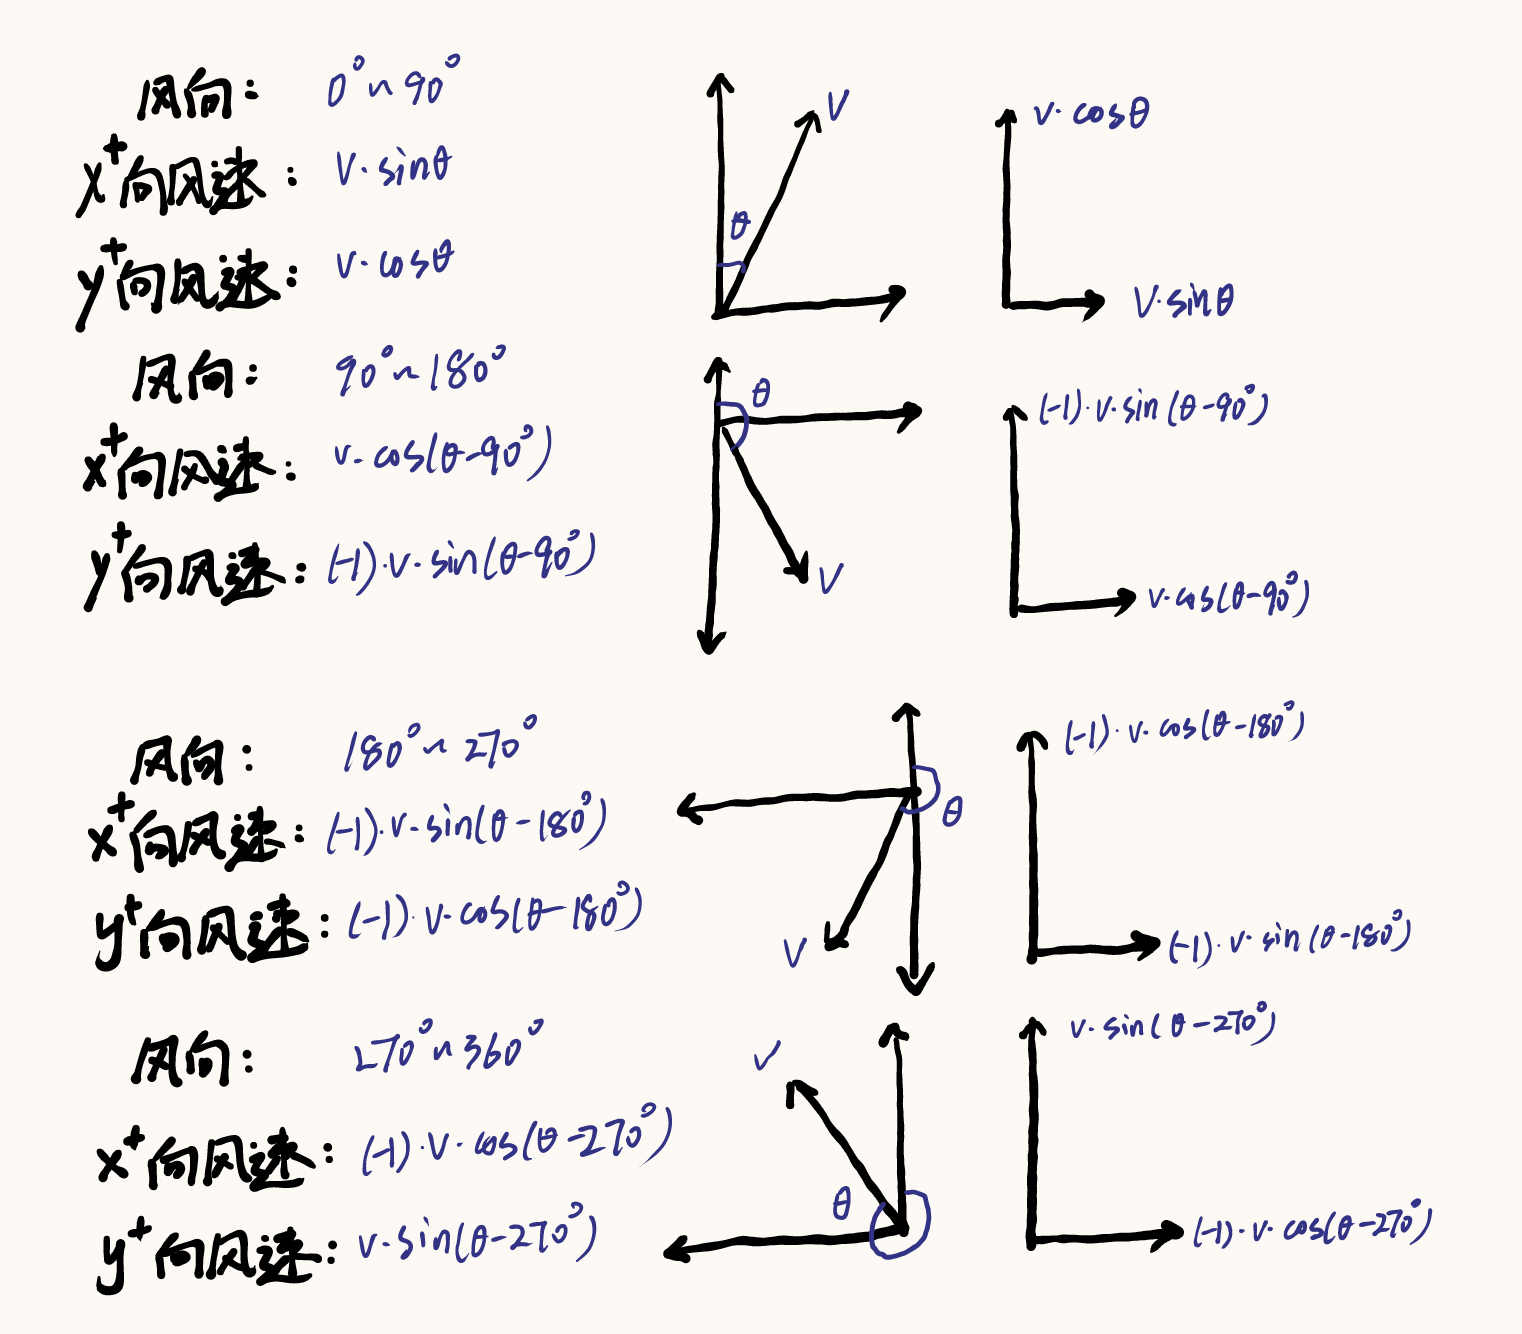 风向: 0°~90°
x⁺向风速: v·sinθ
y⁺向风速: v·cosθ
θ
V
v·cosθ
V·sinθ
风向: 90°~180°
x⁺向风速: v·cos(θ-90°)
y⁺向风速: (-1)·v·sin(θ-90°)
θ
V
(-1)·v·sin(θ-90°)
v·cos(θ-90°)
风向: 180°~270°
x⁺向风速: (-1)·v·sin(θ-180°)
y⁺向风速: (-1)·v·cos(θ-180°)
θ
V
(-1)·v·cos(θ-180°)
(-1)·v·sin(θ-180°)
风向: 270°~360°
x⁺向风速: (-1)·v·cos(θ-270°)
y⁺向风速: v·sin(θ-270°)
V
θ
v·sin(θ-270°)
(-1)·v·cos(θ-270°)